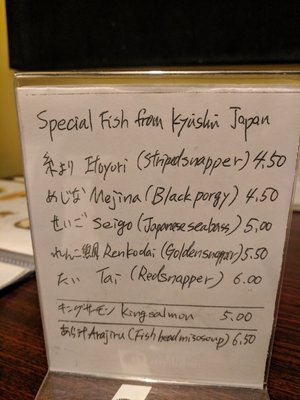 Special Fish from Kyushu Japan
糸より Itoyori (Stripedsnapper) 4.50
めじな Mejina (Black porgy) 4.50
せいご Seigo (Japanese seabass) 5.00
れんこ鯛 Renkodai (Goldensnapper) 5.50
たい Tai (Redsnapper) 6.00
キングサーモン king salmon 5.00
あら汁 Arajiru (Fish head miso soup) 6.50